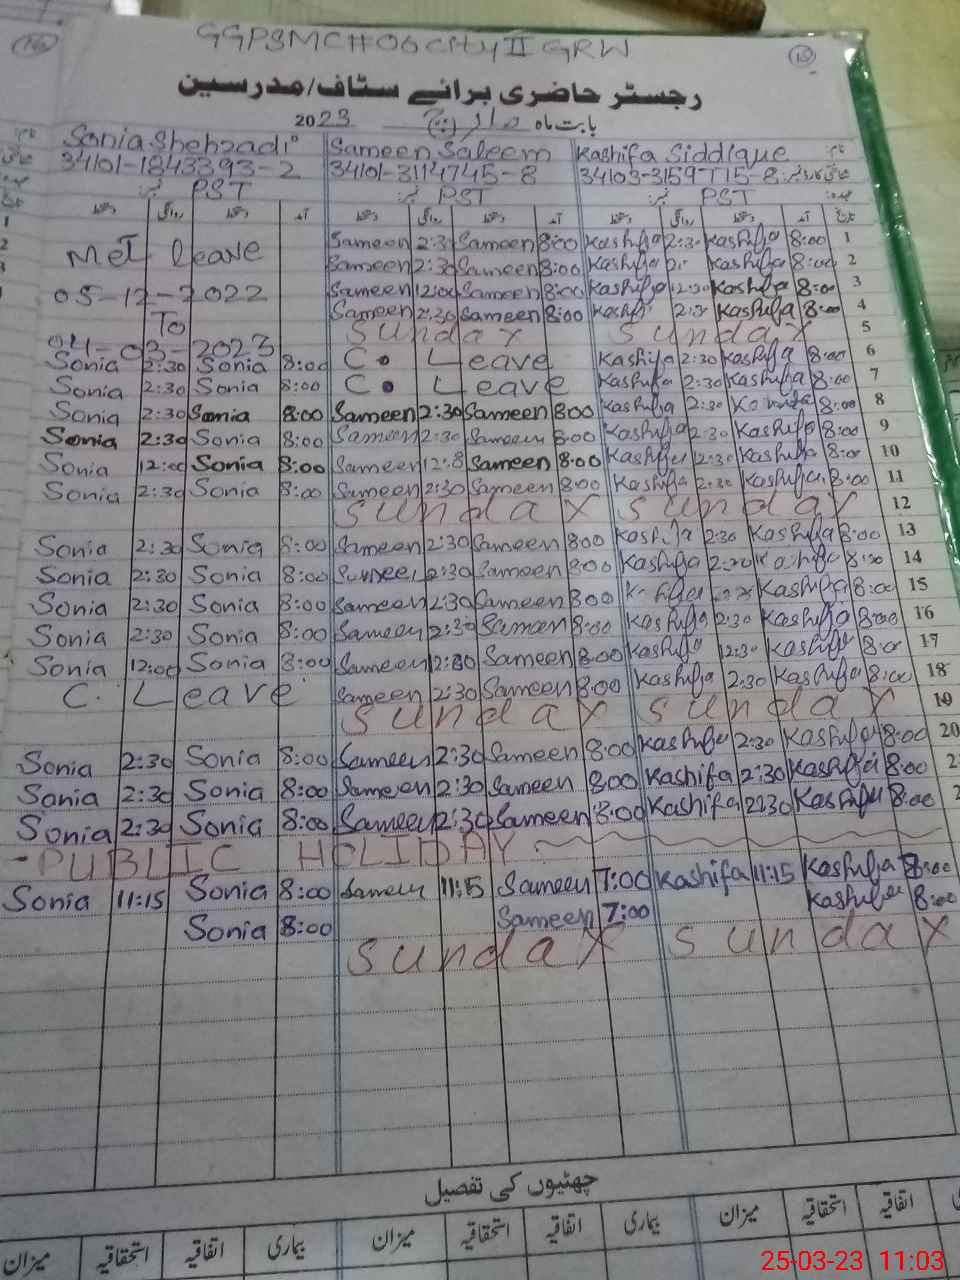 16
15
GGPSMCH06 City II GRW
رجسٹر حاضری برائے سٹاف/مدرسین
بابت ماہ مارچ 2023
Sonia Shehzadi Sameen Saleem Kashifa Siddique
34101-1843393-2 34101-3114745-8 34103-3159715-8
PST PST PST
Sameen 2:30 Sameen 8:00 Kashifa 2:30 Kashifa 8:00 1
Met leave
Sameen 2:30 Sameen 8:00 Kashifa Kashifa 8:00 2
05-12-2022 Sameen 12:00 Sameen 8:00 Kashifa 12:30 Kashifa 8:00 3
To Sameen 2:30 Sameen 8:00 Kashif 2:30 Kashifa 8:00 4
04-03-2023 Sunday Sunday 5
Sonia 2:30 Sonia 8:00 C. Leave Kashifa 2:30 Kashifa 8:00 6
Sonia 2:30 Sonia 8:00 C. Leave Kashifa 2:30 Kashifa 8:00 7
Sonia 2:30 Sonia 8:00 Sameen 2:30 Sameen 800 Kashifa 2:30 8:00 8
Sonia 2:30 Sonia 8:00 Sameen 2:30 Sameen 8:00 Kashifa 2:30 Kashifa 8:00 9
Sonia 12:00 Sonia 8:00 Sameen Sameen 8:00 Kashifa 12:30 Kashifa 8:00 10
Sonia 2:30 Sonia 8:00 Sameen 2:30 Sameen 800 Kashifa 2:30 Kashifa 8:00 11
Sunday Sunday 12
Sonia 2:30 Sonia 8:00 Sameen 2:30 Sameen 800 Kashifa 2:30 Kashifa 8:00 13
Sonia 2:30 Sonia 8:00 Sameen 2:30 Sameen 8:00 Kashifa 8:00 14
Sonia 2:30 Sonia 8:00 Sameen 2:30 Sameen 800 Kashifa 8:00 15
Sonia 2:30 Sonia 8:00 Sameen 2:30 Sameen 8:00 Kashifa 2:30 Kashifa 8:00 16
Sonia 12:00 Sonia 8:00 Sameen Sameen 8:00 Kashifa 12:30 Kashifa 8:00 17
C. Leave Sameen 2:30 Sameen 8:00 Kashifa 2:30 Kashifa 8:00 18
Sunday Sunday 19
Sonia 2:30 Sonia 8:00 Sameen 2:30 Sameen 8:00 Kashifa 2:30 Kashifa 8:00 20
Sonia 2:30 Sonia 8:00 Sameen 2:30 Sameen 800 Kashifa 2:30 Kashifa 8:00 2
Sonia 2:30 Sonia 8:00 Sameen 2:30 Sameen 8:00 Kashifa 2:30 Kashifa 8:00 2
PUBLIC HOLIDAY
Sonia 11:15 Sonia 8:00 Sameen 11:15 Sameen 7:00 Kashifa 11:15 Kashifa 8:00
Sonia 8:00 Sameen 7:00 Kashifa 8:00
Sunday Sunday
چھٹیوں کی تفصیل
اتفاقیہ استحقاقیہ میزان بیماری اتفاقیہ استحقاقیہ میزان بیماری اتفاقیہ استحقاقیہ میزان
25-03-23 11:03